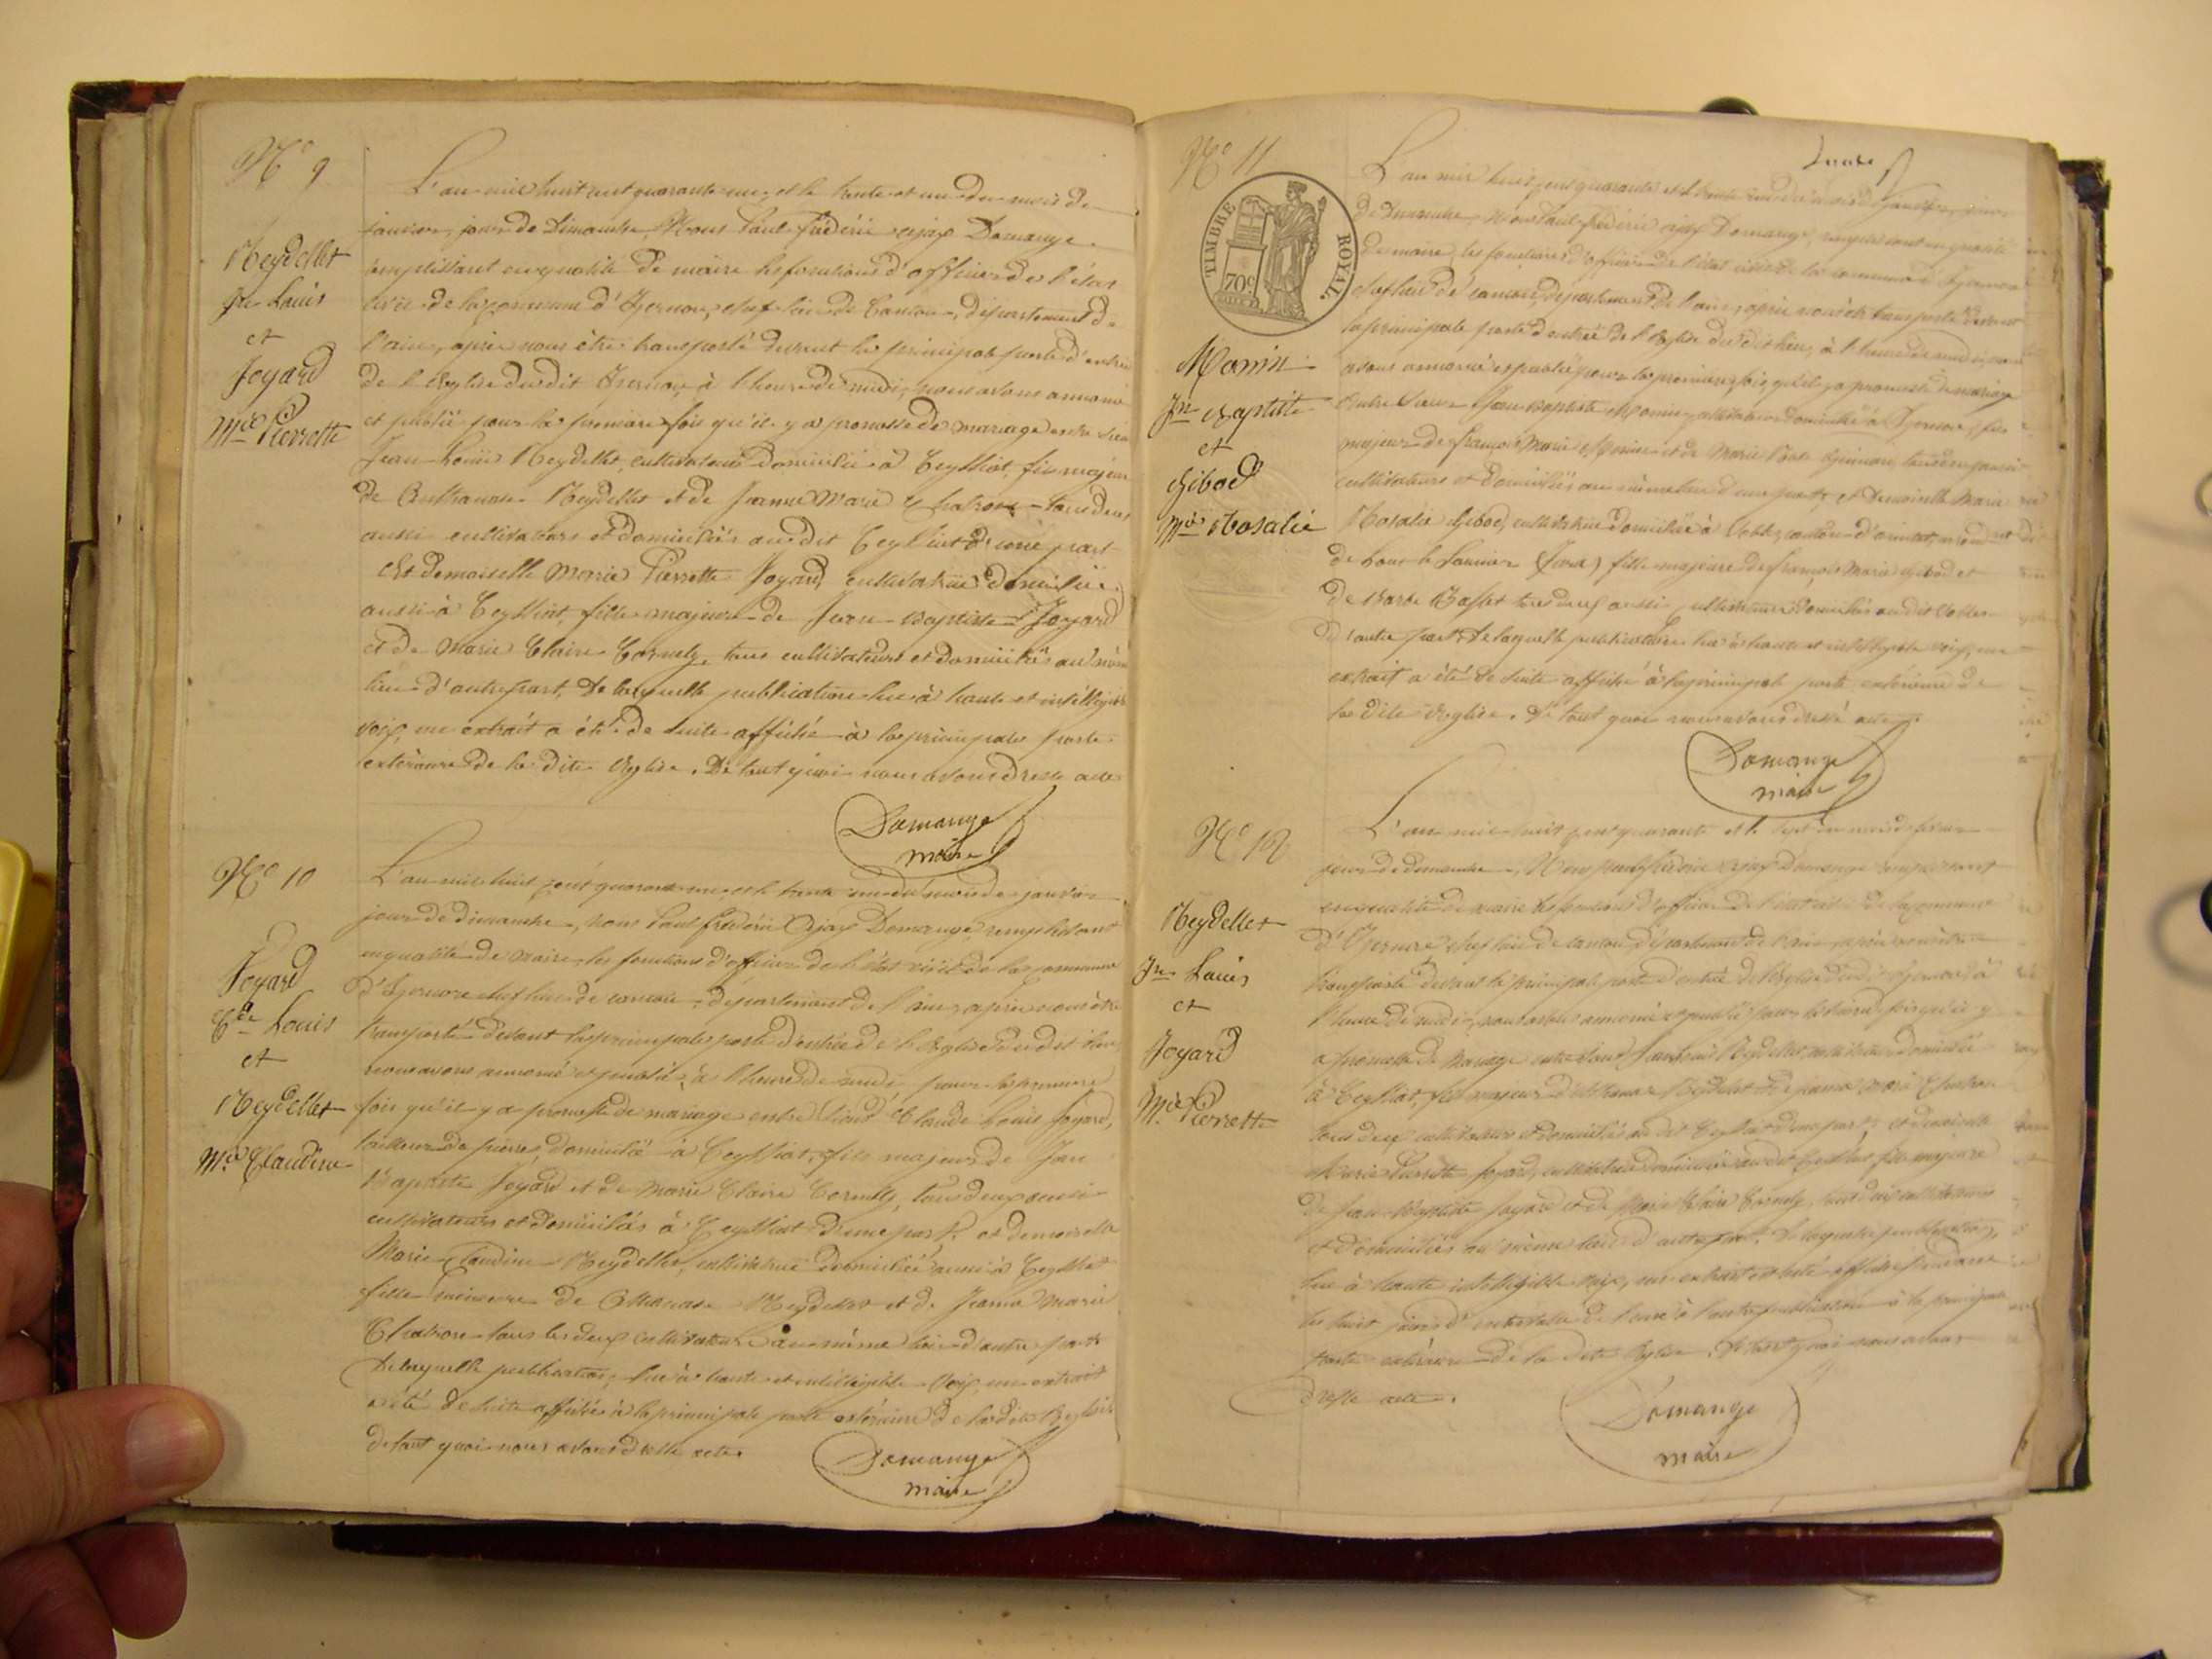 N° 9
Reydellet
Jn Louis
et
Joyard
Mie Pierrette
L'an mil huit cent quarante un, et le trente et un du mois de
janvier, jour de Dimanche, Nous Paul Frédéric Ajax Domange
remplissant en qualité de maire les fonctions d'officier de l'état
civil de la commune d'Izernore, chef lieu de Canton, département de
l'ain, après nous être transporté devant la principale porte d'entrée
de l'Eglise dudit Izernore, à l'heure de midi, nous avons annoncé
et publié pour la première fois qu'il y a promesse de mariage entre Sieur
Jean Louis Reydellet, cultivateur domicilié à Ceyssiat, fils majeur
de Anthanase Reydellet et de Jeanne Marie Chatron tous deux
aussi cultivateurs et domiciliés audit Ceyssiat d'une part
Et demoiselle Marie Pierrette Joyard, cultivatrice domiciliée
aussi à Ceyssiat, fille majeure de Jean Baptiste Joyard
et de Marie Claire Cornely, tous cultivateurs et domiciliés au même
lieu d'autre part, De laquelle publication lue à haute et intelligible
voix, un extrait a été de suite affiché à la principale porte
extérieure de la dite Eglise. De tout quoi nous avons dressé acte
Domange
maire
N° 10
Joyard
Cde Louis
et
Reydellet
Mie Claudine
L'an mil huit cent quarante un et le trente un du mois de janvier
jour de dimanche, nous Paul frédéric Ajax Domange, remplissant
en qualité de maire, les fonctions d'officier de l'état civil de la commune
d'Izernore chef lieu de canton, département de l'ain, après nous être
transporté devant la principale porte d'entrée de l'Eglise du dit lieu,
nous avons annoncé et publié, à l'heure de midi pour la première
fois qu'il y a promesse de mariage entre Sieur Claude Louis Joyard,
tailleur de pierres, domicilié à Ceyssiat, fils majeur de Jean
Baptiste Joyard et de Marie Claire Cornely, tous deux aussi
cultivateurs et domiciliés à Ceyssiat d'une part, et demoiselle
Marie Claudine Reydellet, cultivatrice domiciliée aussi à Ceyssiat
fille mineure de Athanase Reydellet et de Jeanne Marie
Chatron tous les deux cultivateurs au même lieu d'autre part
De laquelle publication, lue à haute et intelligible voix, un extrait
a été de suite affiché à la principale porte extérieure de la dite Eglise
de tout quoi nous avons dressé acte.
Domange
maire
N° 11
TIMBRE ROYAL
70c
Monin
Jn Baptiste
et
Gibod
Mie Rosalie
L'an mil huit cent quarante et le trente un du mois de janvier, jour
de dimanche, Nous Paul frédéric ajax Domange, remplissant en qualité
de maire, les fonctions d'officier de l'état civil de la commune d'Izernore
chef lieu de canton, département de l'ain, après nous être transporté devant
la principale porte d'entrée de l'Eglise du dit lieu, à l'heure de midi, nous
avons annoncé et publié pour la première fois, qu'il y a promesse de mariage
Entre Sieur Jean Baptiste Monin, cultivateur domicilié à Izernore, fils
majeur de françois Marie Monin et de Marie tous deux aussi
cultivateurs et domiciliés au même lieu d'une part, et Demoiselle Marie
Rosalie Gibod, cultivatrice domiciliée à canton d'arinthod,
de Lons le Saunier (Jura) fille majeure de françois Marie Gibod et
de Barbe tous deux aussi cultivateurs domiciliés audit
d'autre part. De laquelle publication lue à haute et intelligible voix, un
extrait a été de suite affiché à la principale porte extérieure de
la dite Eglise. De tout quoi nous avons dressé acte.
Domange
maire
N° 12
Reydellet
Jn Louis
et
Joyard
Mie Pierrette
L'an mil huit cent quarante et le sept du mois de février
jour de dimanche, Nous paul frédéric ajax Domange remplissant
en qualité de maire les fonctions d'officier de l'état civil de la commune
d'Izernore chef lieu de canton, département de l'ain, après nous être
transporté devant la principale porte d'entrée de l'Eglise dudit Izernore, à
l'heure de midi, nous avons annoncé et publié pour la fois qu'il y
a promesse de mariage entre Sieur Jean Louis Reydellet cultivateur domicilié
à Ceyssiat, fils majeur d'Athanase Reydellet et de jeanne Marie Chatron
tous deux cultivateurs et domiciliés au dit Ceyssiat d'une part, et demoiselle
Marie Pierrette Joyard, cultivatrice domiciliée audit Ceyssiat fille majeure
de Jean Baptiste Joyard et de Marie Claire Cornely, tous deux cultivateurs
et domiciliés au même lieu d'autre part. De laquelle publication,
lue à haute intelligible voix, un extrait a été affiché pendant
les huit jours d'intervalle de l'une à l'autre publication à la principale
porte extérieure de la dite Eglise. De tout quoi nous avons
dressé acte.
Domange
maire